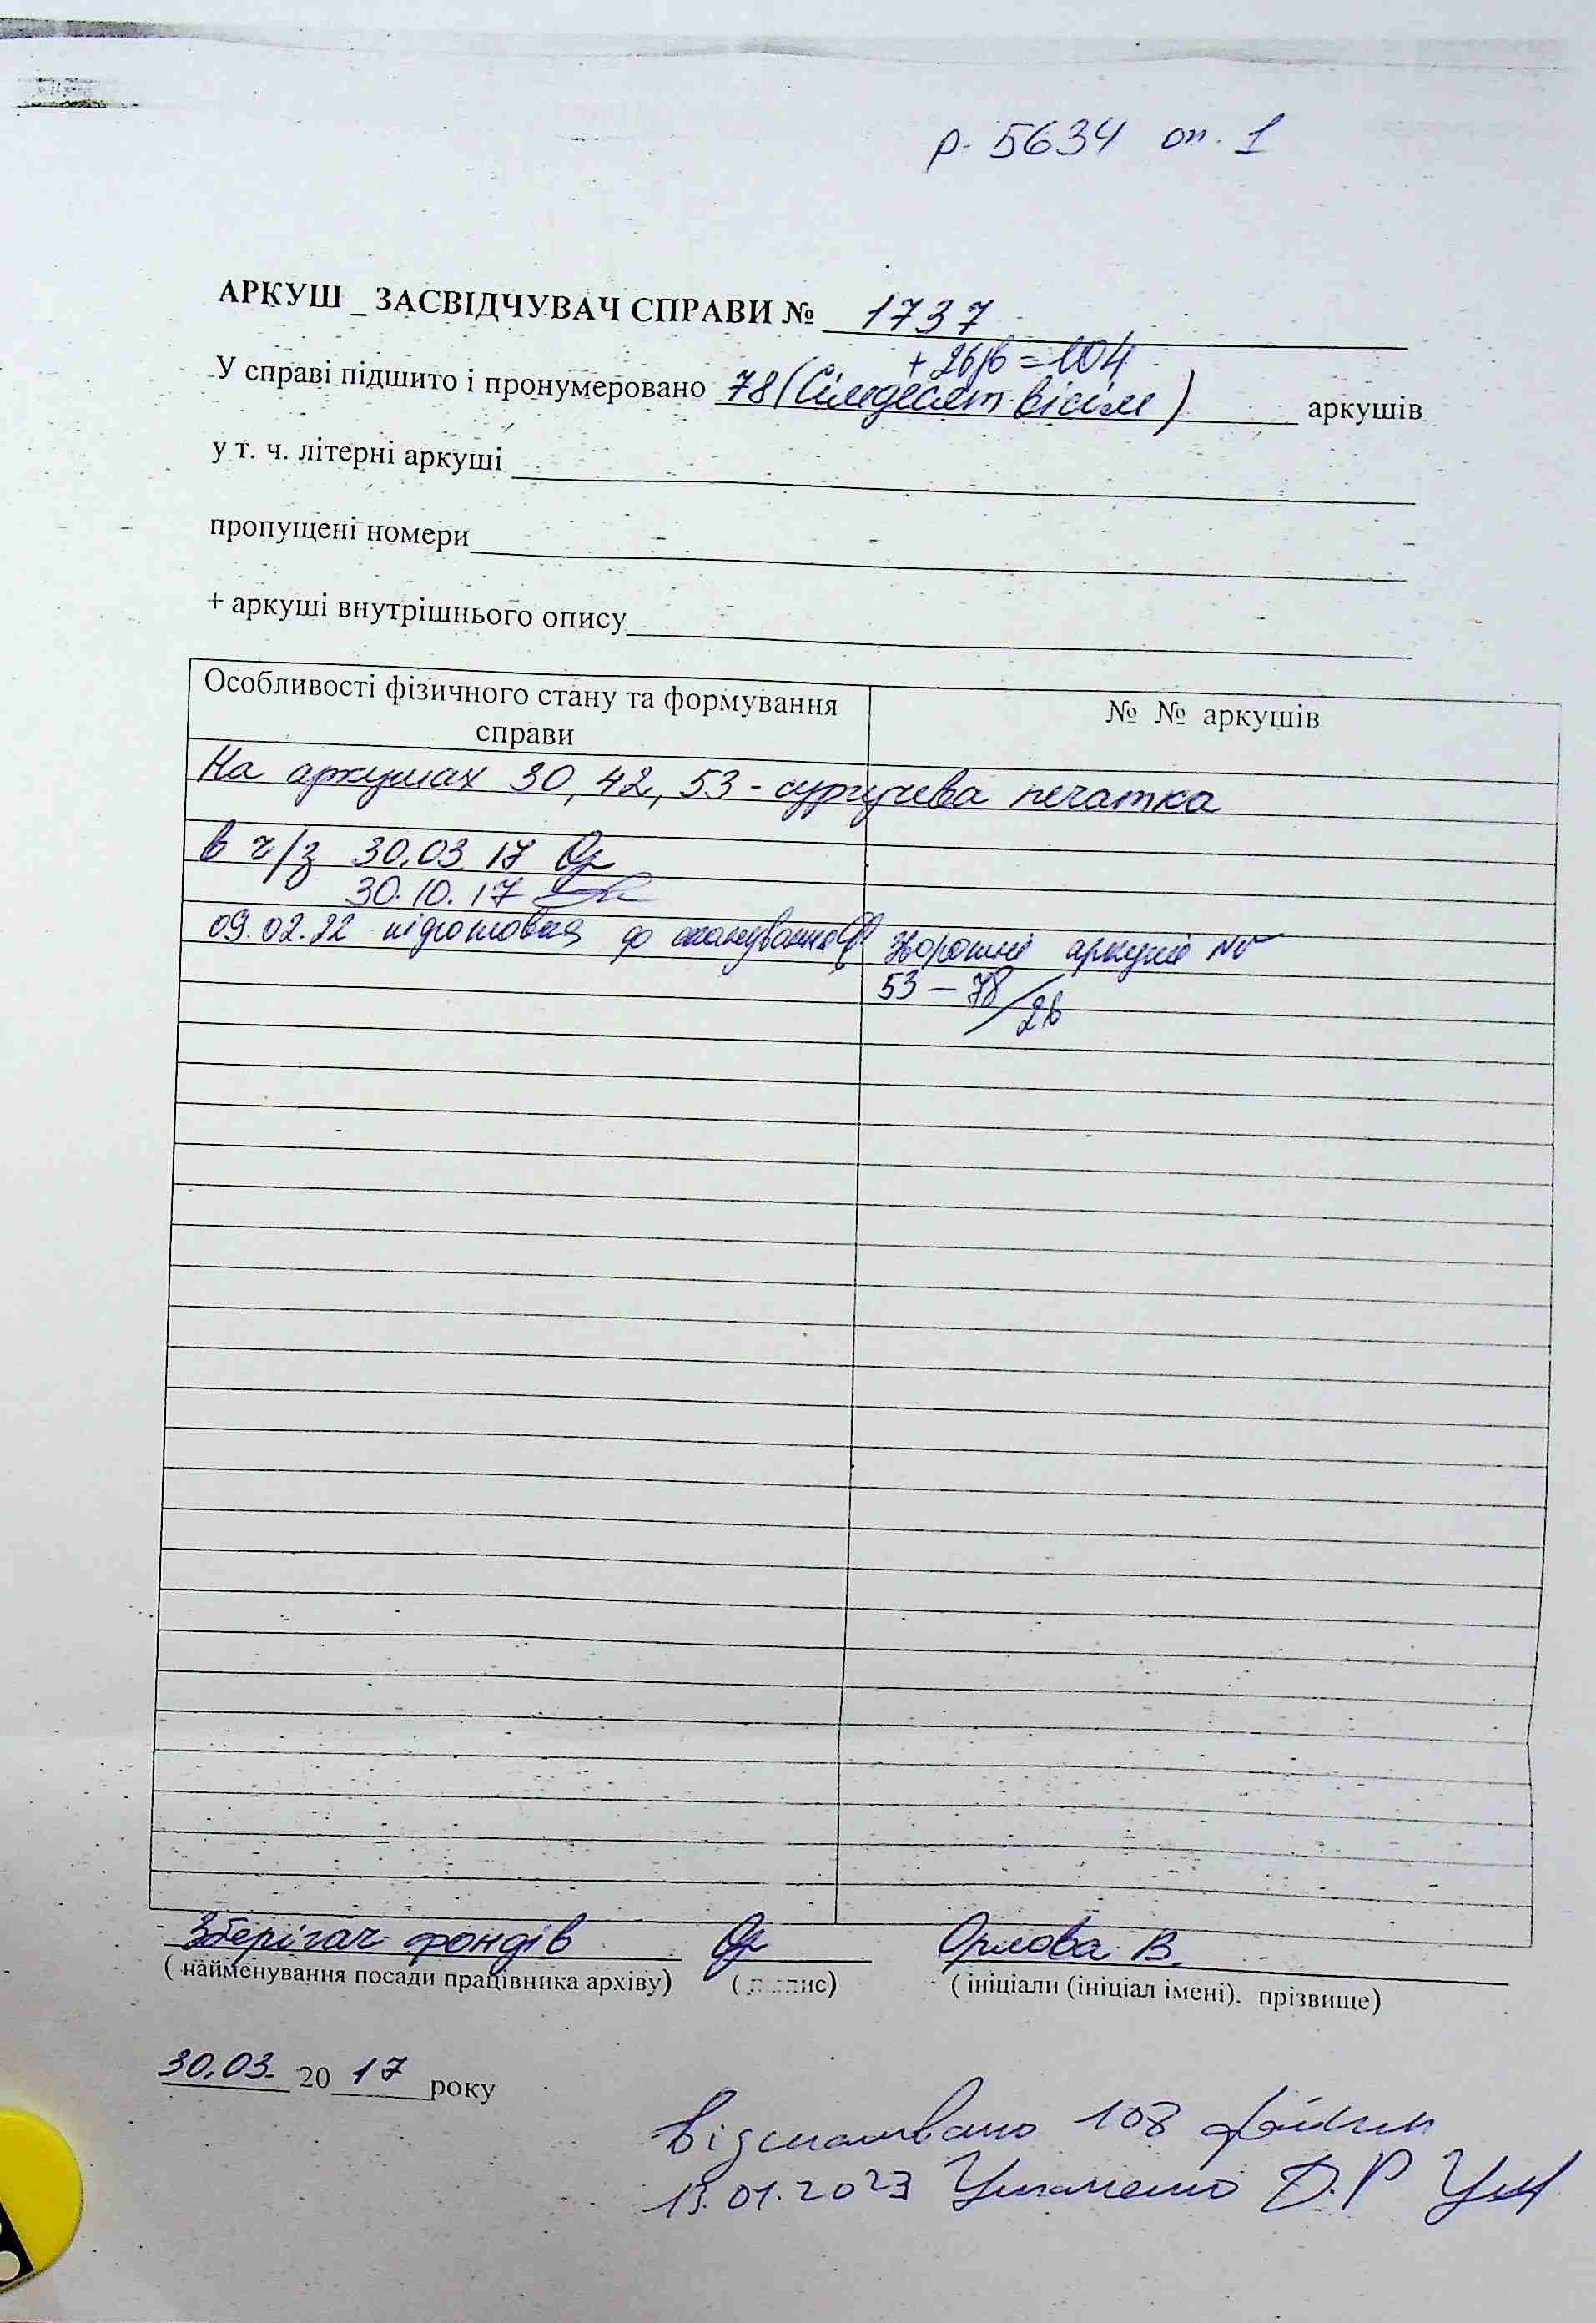 р. 5634 оп. 1
АРКУШ _ ЗАСВІДЧУВАЧ СПРАВИ № 1737
+ 26зв = 104
У справі підшито і пронумеровано 78 (Сімдесят вісім) аркушів
у т. ч. літерні аркуші
пропущені номери
+ аркуші внутрішнього опису
Особливості фізичного стану та формування справи
№ № аркушів
На аркушах 30, 42, 53 - сургучева печатка
в ч/з 30.03.17
30.10.17
09.02.22 підготовка до сканування
зворотні аркуші №
53 – 78 / 26
Зберігач фондів Орлова В.
( найменування посади працівника архіву) ( підпис) ( ініціали (ініціал імені). прізвище)
30.03. 20 17 року
Відскановано 108 файлів
13.01.2023 Д.Р